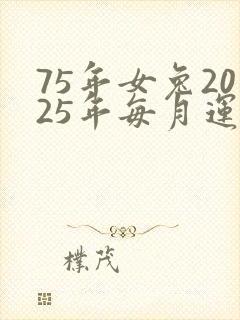 75年女兔20
25年每月運
樸茂